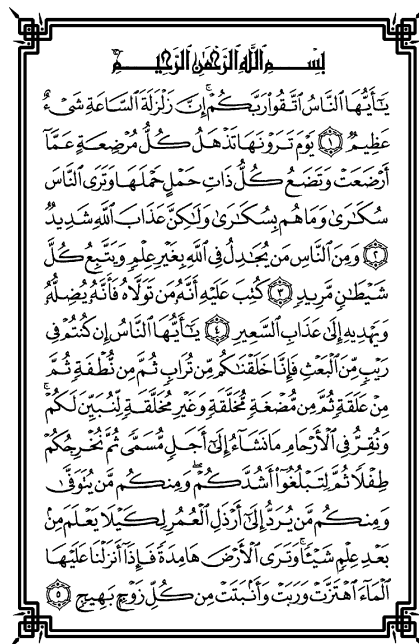 بِسْمِ اللَّهِ الرَّحْمَٰنِ الرَّحِيمِ
يَا أَيُّهَا النَّاسُ اتَّقُوا رَبَّكُمْ ۚ إِنَّ زَلْزَلَةَ السَّاعَةِ شَيْءٌ
عَظِيمٌ ١ يَوْمَ تَرَوْنَهَا تَذْهَلُ كُلُّ مُرْضِعَةٍ عَمَّا
أَرْضَعَتْ وَتَضَعُ كُلُّ ذَاتِ حَمْلٍ حَمْلَهَا وَتَرَى النَّاسَ
سُكَارَىٰ وَمَا هُم بِسُكَارَىٰ وَلَٰكِنَّ عَذَابَ اللَّهِ شَدِيدٌ
٢ وَمِنَ النَّاسِ مَن يُجَادِلُ فِي اللَّهِ بِغَيْرِ عِلْمٍ وَيَتَّبِعُ كُلَّ
شَيْطَانٍ مَّرِيدٍ ٣ كُتِبَ عَلَيْهِ أَنَّهُ مَن تَوَلَّاهُ فَأَنَّهُ يُضِلُّهُ
وَيَهْدِيهِ إِلَىٰ عَذَابِ السَّعِيرِ ٤ يَا أَيُّهَا النَّاسُ إِن كُنتُمْ فِي
رَيْبٍ مِّنَ الْبَعْثِ فَإِنَّا خَلَقْنَاكُم مِّن تُرَابٍ ثُمَّ مِن نُّطْفَةٍ ثُمَّ
مِنْ عَلَقَةٍ ثُمَّ مِن مُّضْغَةٍ مُّخَلَّقَةٍ وَغَيْرِ مُخَلَّقَةٍ لِّنُبَيِّنَ لَكُمْ ۚ
وَنُقِرُّ فِي الْأَرْحَامِ مَا نَشَاءُ إِلَىٰ أَجَلٍ مُّسَمًّى ثُمَّ نُخْرِجُكُمْ
طِفْلًا ثُمَّ لِتَبْلُغُوا أَشُدَّكُمْ ۖ وَمِنكُم مَّن يُتَوَفَّىٰ
وَمِنكُم مَّن يُرَدُّ إِلَىٰ أَرْذَلِ الْعُمُرِ لِكَيْلَا يَعْلَمَ مِن
بَعْدِ عِلْمٍ شَيْئًا ۚ وَتَرَى الْأَرْضَ هَامِدَةً فَإِذَا أَنزَلْنَا عَلَيْهَا
الْمَاءَ اهْتَزَّتْ وَرَبَتْ وَأَنبَتَتْ مِن كُلِّ زَوْجٍ بَهِيجٍ ٥